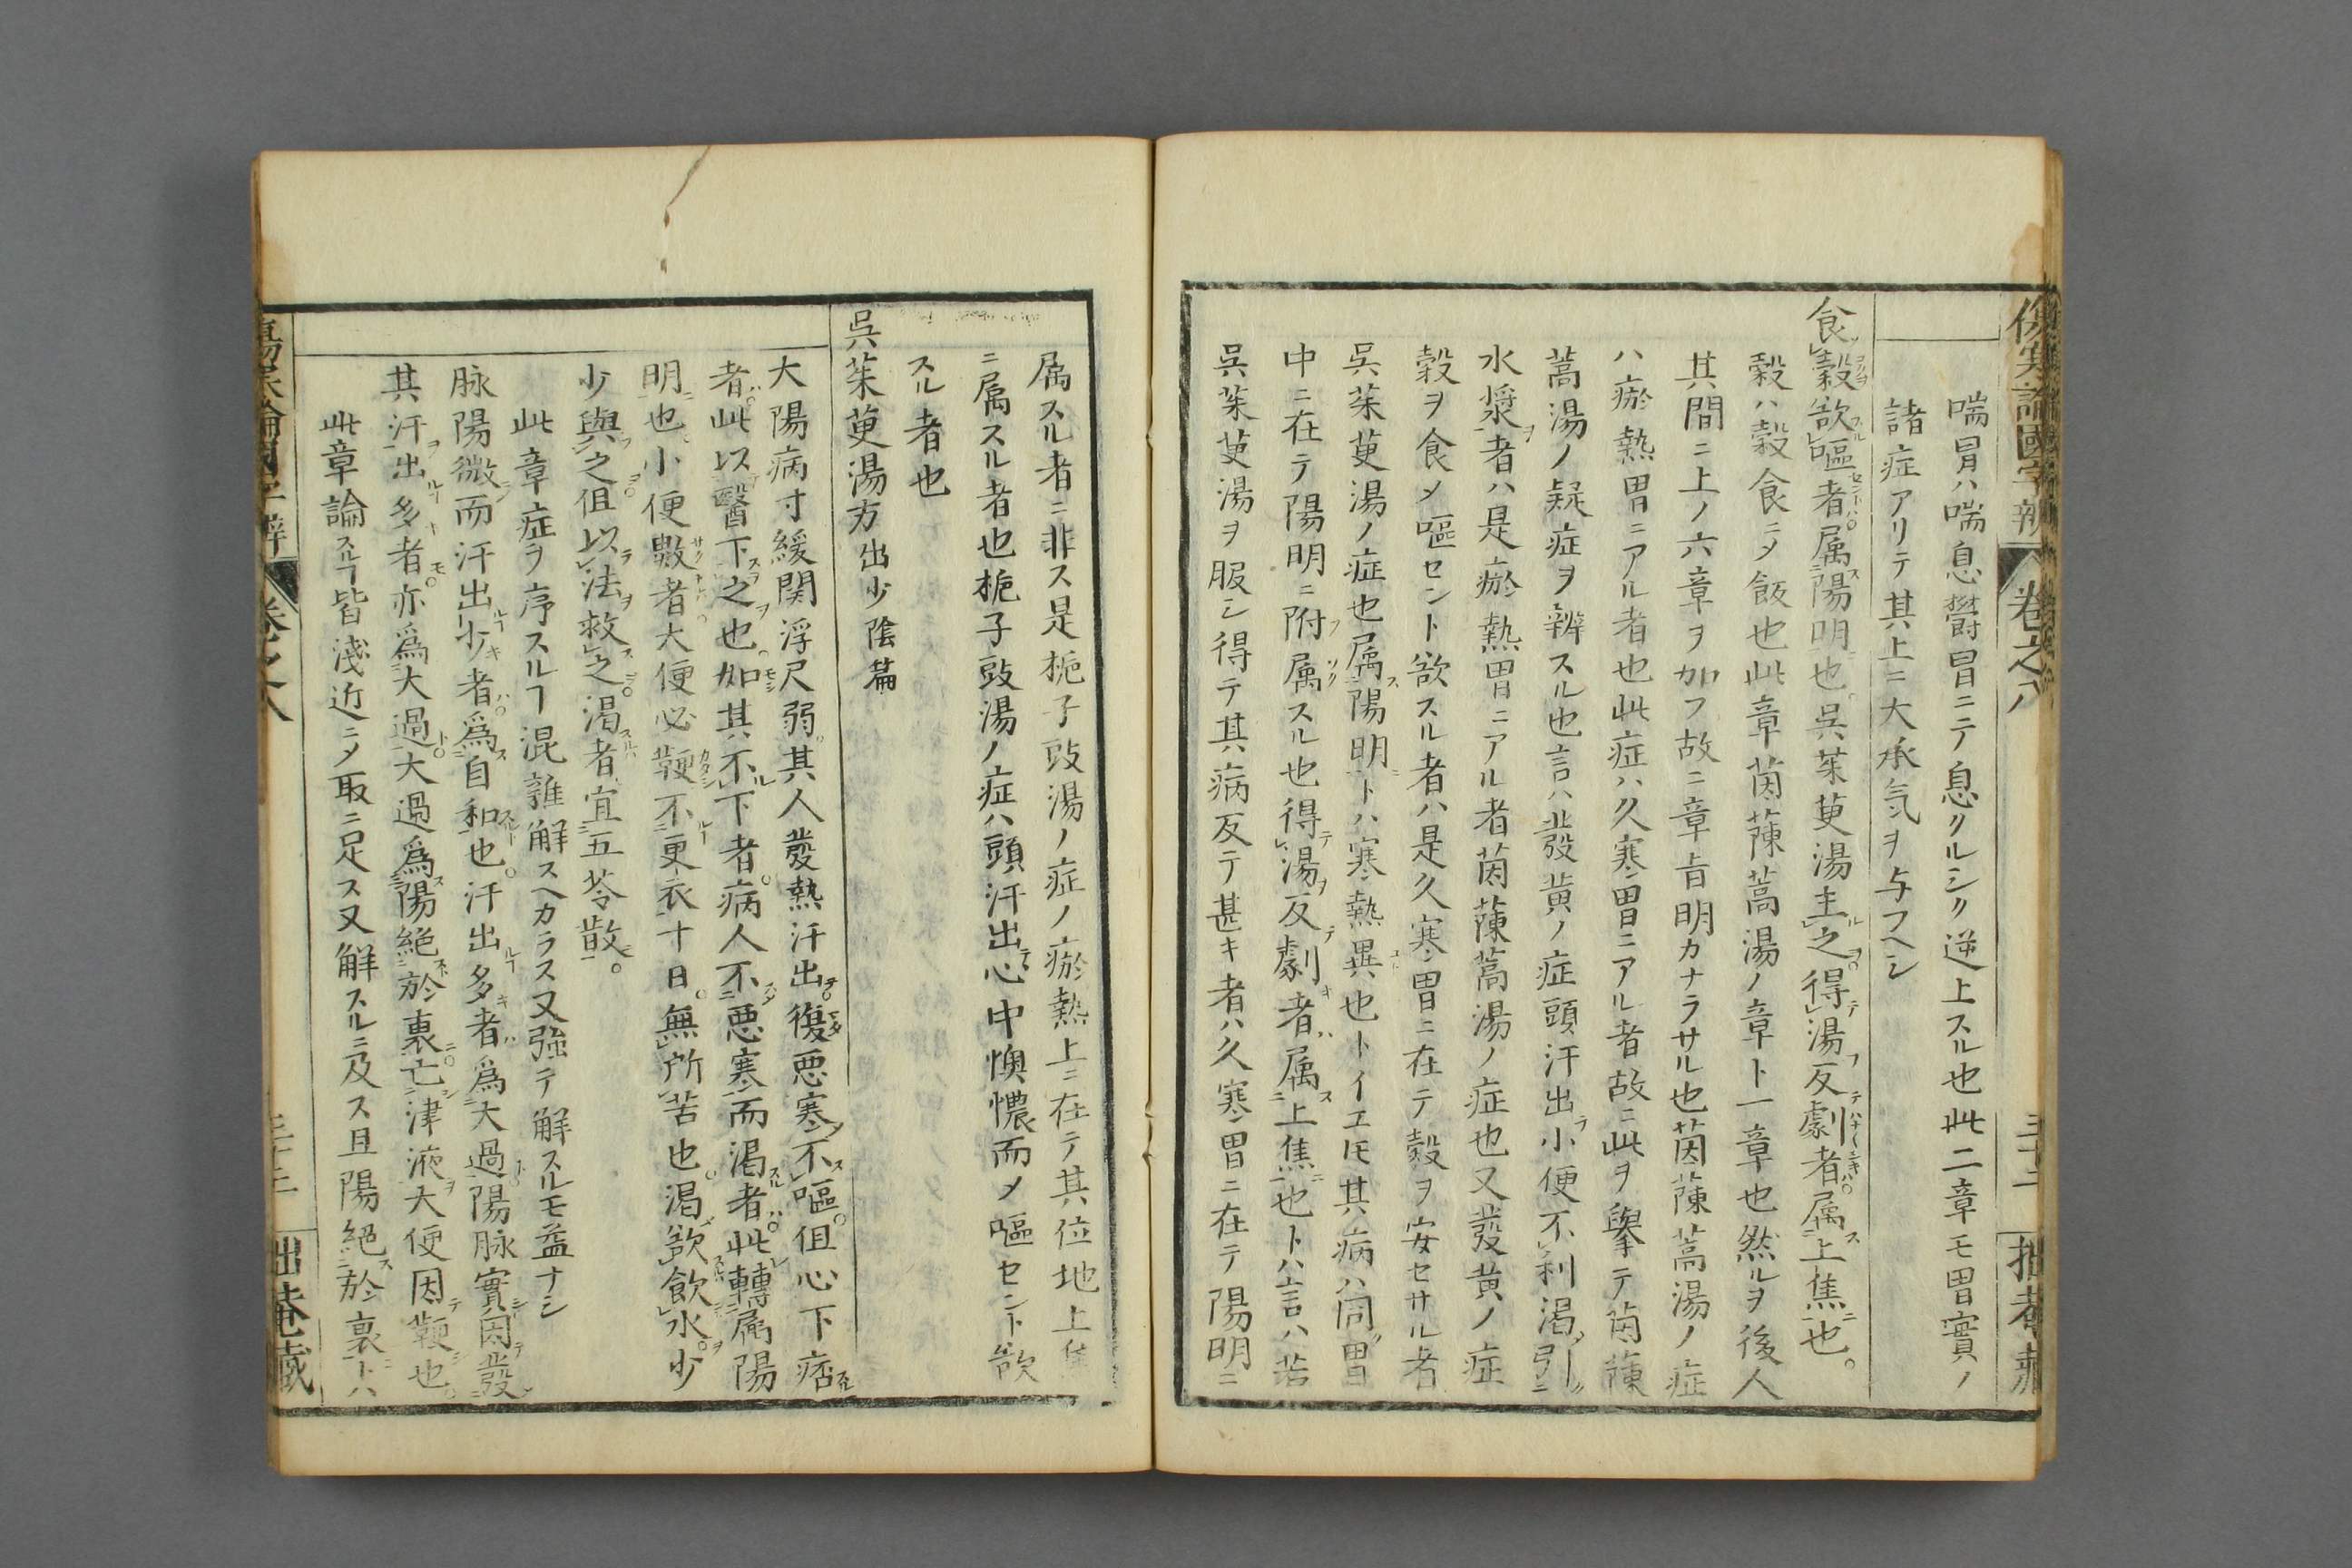 傷寒論國字辨 卷之八 三十二 拙菴藏
喘冒ハ喘息欝冒ニテ息クルシク逆上スル也此二章モ胃實ノ
諸症アリテ其上ニ大承気ヲ与フヘシ
食穀欲嘔者属陽明也呉茱萸湯主之得湯反劇者属上焦也。
穀ハ穀食ニメ飯也此章茵蔯蒿湯ノ章ト一章也然ルヲ後人
其間ニ上ノ六章ヲ加フ故ニ章旨明カナラサル也茵蔯蒿湯ノ症
ハ瘀熱胃ニアル者也此症ハ久寒胃ニアル者故ニ此ヲ擧テ茵蔯
蒿湯ノ疑症ヲ辨スル也言ハ發黄ノ症頭汗出小便不利渇引
水漿者ハ是瘀熱胃ニアル者茵蔯蒿湯ノ症也又發黄ノ症
穀ヲ食メ嘔セント欲スル者ハ是久寒胃ニ在テ穀ヲ安セサル者
呉茱萸湯ノ症也属陽明トハ寒熱異也トイエトモ其病ハ同胃
中ニ在テ陽明ニ附属スル也得湯反劇者属上焦也トハ言ハ若
呉茱萸湯ヲ服シ得テ其病反テ甚キ者ハ久寒胃ニ在テ陽明ニ
属スル者ニ非ス是梔子豉湯ノ症ノ瘀熱上ニ在テ其位地上焦
ニ属スル者也梔子豉湯ノ症ハ頭汗出心中懊憹而メ嘔セント欲
スル者也
呉茱萸湯方出少陰篇
大陽病寸緩関浮尺弱其人發熱汗出復悪寒不嘔但心下痞
者此以醫下之也如其不下者病人不悪寒而渇者此轉属陽
明也小便數者大便必鞕不更衣十日無所苦也渇欲飲水少
少與之但以法救之渇者宜五苓散。
此章症ヲ序スルヿ混雜解スヘカラス又強テ解スルモ益ナシ
脉陽微而汗出少者爲自和也汗出多者爲大過陽脉實因發
其汗出多者亦爲大過大過爲陽絶於裏亡津液大便因鞕也
此章論スルヿ皆淺近ニメ取ニ足ス又解スルニ及ス且陽絶於裏トハ
傷寒論國字辨 卷之八 三十二 拙菴藏